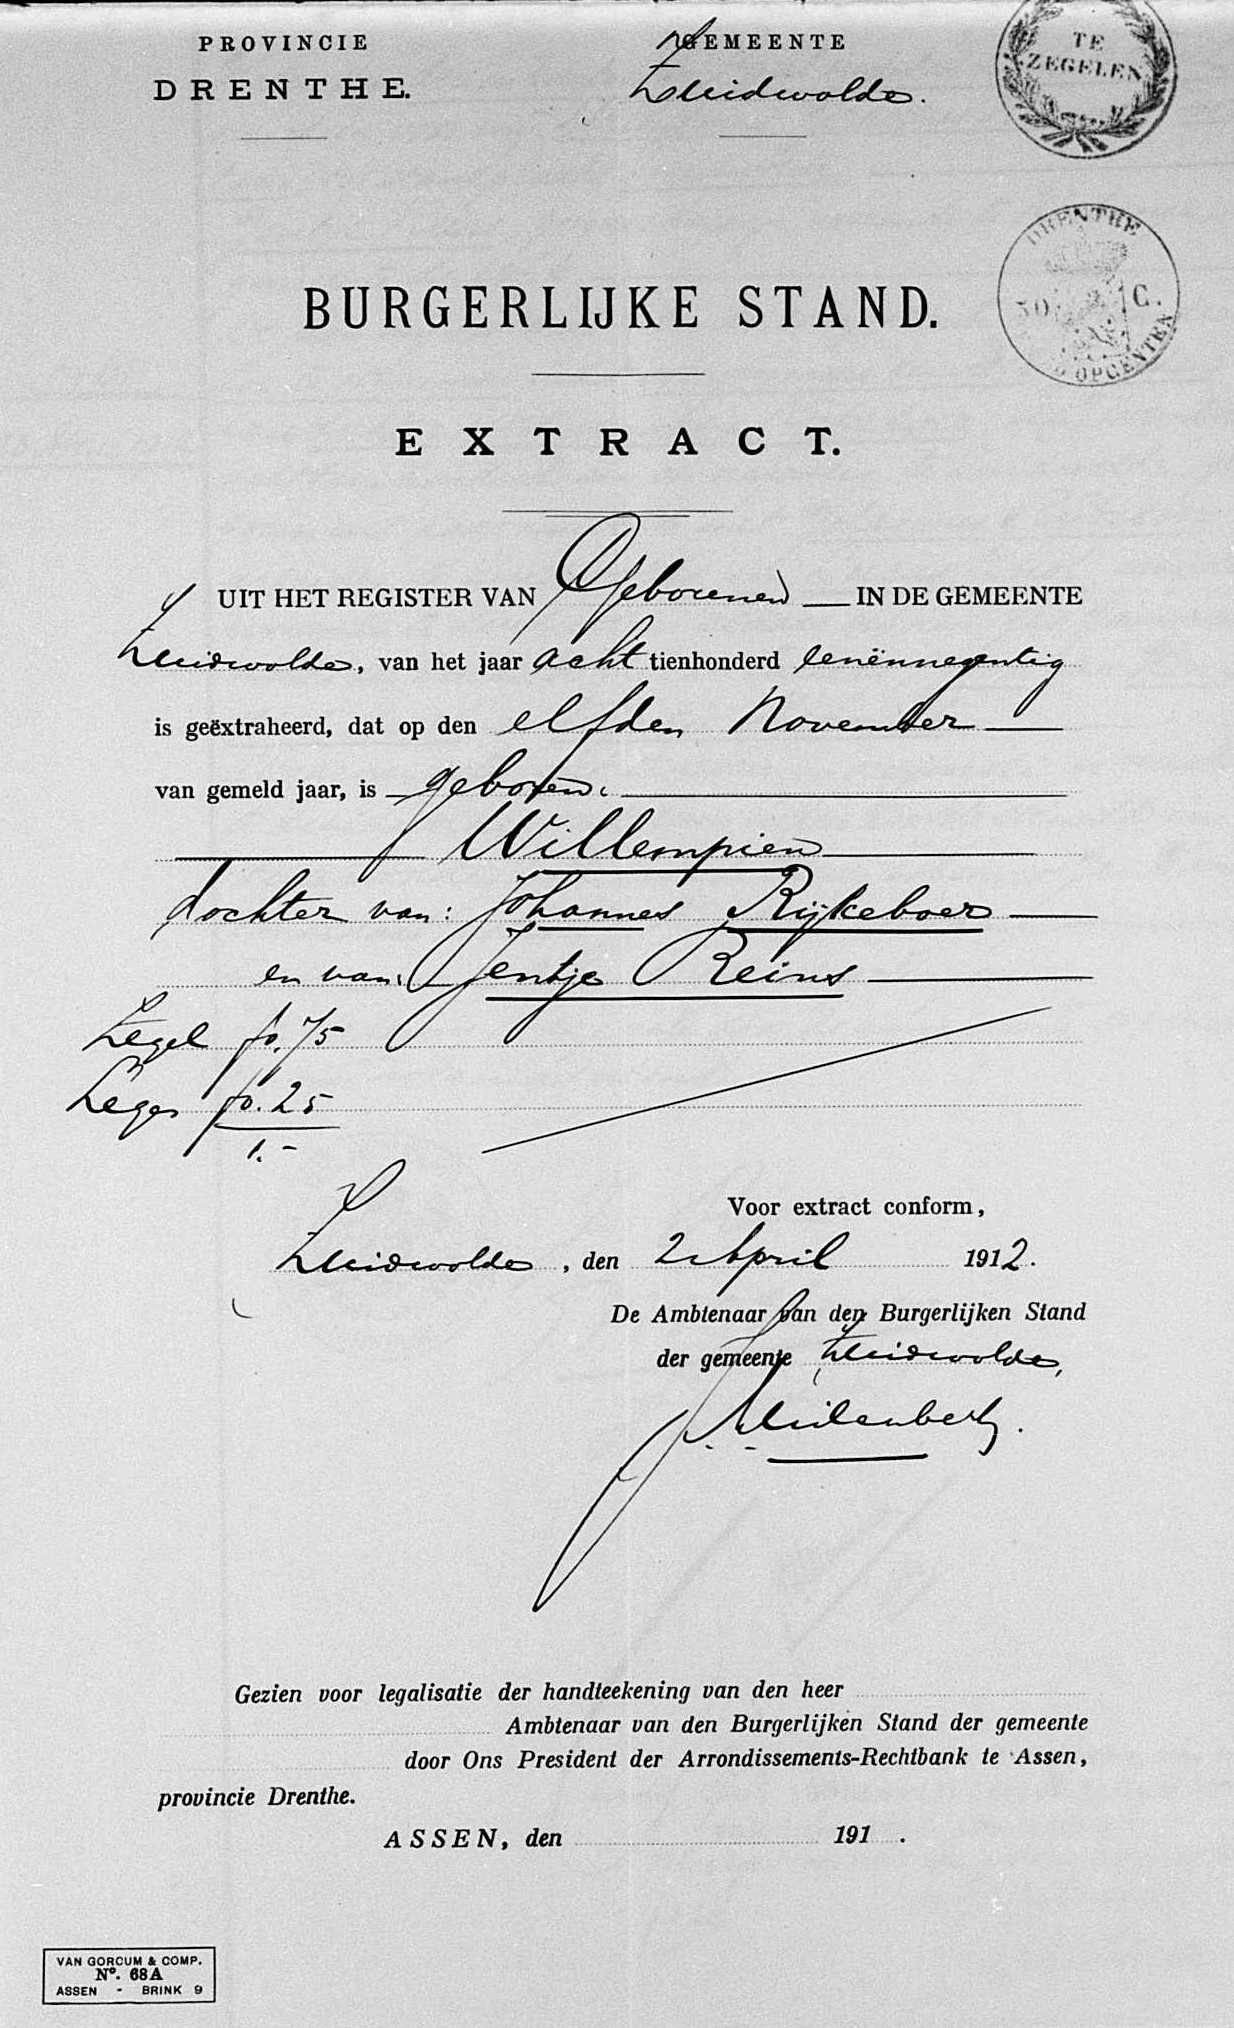 PROVINCIE
DRENTHE.
GEMEENTE
Zuidwolde.
TE
ZEGELEN
DRENTHE
50 C.
OPCENTEN
BURGERLIJKE STAND.
EXTRACT.
UIT HET REGISTER VAN Geborenen IN DE GEMEENTE
Zuidwolde, van het jaar acht tienhonderd eenënnegentig
is geëxtraheerd, dat op den elfden November
van gemeld jaar, is geboren:
Willempien
dochter van: Johannes Rijkeboer
en van: Jentje Reins
Zegel fo.75
Leges fo.25
1.-
Voor extract conform,
Zuidwolde, den 2 April 1912.
De Ambtenaar van den Burgerlijken Stand
der gemeente Zuidwolde,
Gezien voor legalisatie der handteekening van den heer
Ambtenaar van den Burgerlijken Stand der gemeente
door Ons President der Arrondissements-Rechtbank te Assen,
provincie Drenthe.
ASSEN, den 191 .
VAN GORCUM & COMP.
No. 68A
ASSEN - BRINK 9